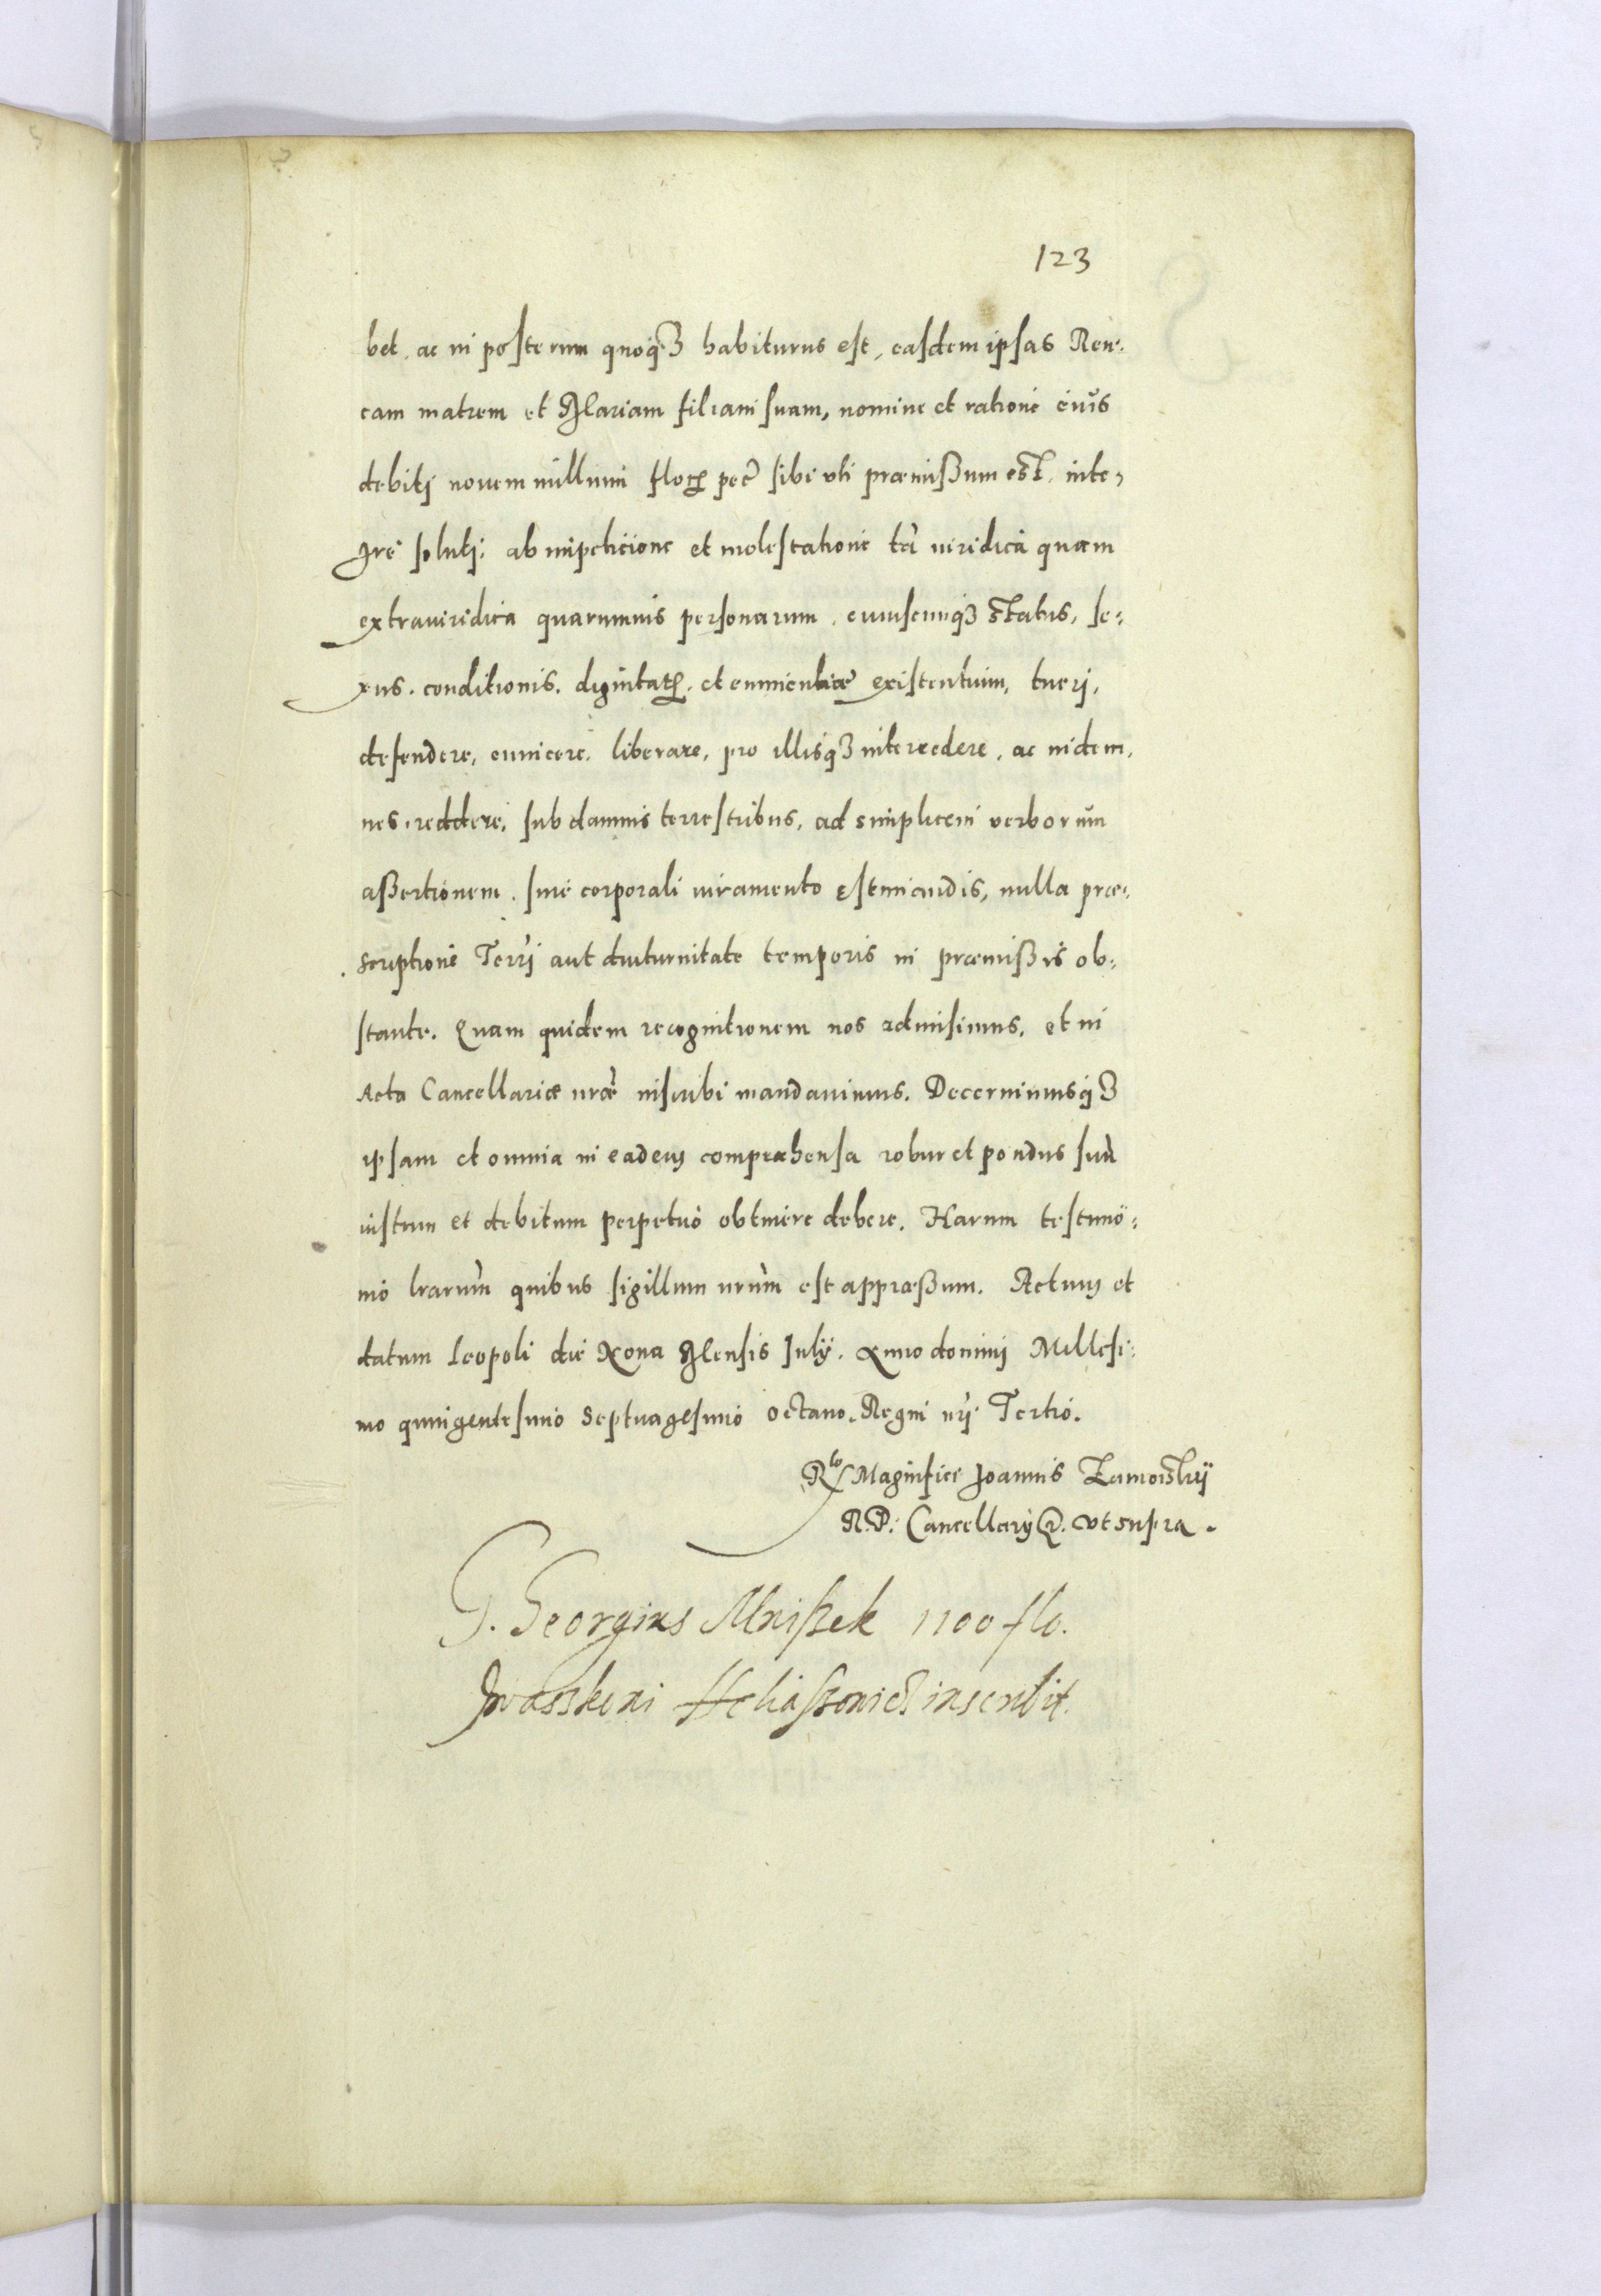 123
bet, ac in posterum quoq₃ habiturus est, easdem ipsas Ren-
cam matrem et Mariam filiam suam, nomine et ratione eius
debitj nouem millium floꝝ pec̃ sibi uti præmißum est, inte-
grè solutj: ab impetitione et molestatione tã iuridica quam
extraiuridica quarumuis personarum, cuiuscunq₃ status, se-
xus, conditionis, dignitatꝝ, et eminentiæ existentium, tuerj,
defendere, euincere, liberare, pro illisq₃ intercedere, ac indem-
nes reddere, sub damnis terrestribus, ad simplicem verborum
aßertionem, sine corporali iuramento estimandis, nulla præ-
scriptione Terrj aut diuturnitate temporis in præmißis ob-
stante. Quam quidem recognitionem nos admisimus, et in
Acta Cancellariæ nr̃æ inscribi mandauimus. Decernimusq₃
ipsam et omnia in eadem comprehensa robur et pondus suũ
iustum et debitum perpetuò obtinere debere. Harum testimo-
nio lr̃arum quibus sigillum nr̃um est appræßum. Actum et
datum Leopoli die Nona Mensis Julÿ. Anno dominj Millesi-
mo quingentesimo septuagesimo octauo. Regni nr̃j Tertio.
Rlo Magnifici Joannis Zamoiskij
R. P. Cancellarij &. ut supra.
G. Georgius Mnißek 1100 flo.
Iwasskoni Heliaßowicz inscribit.